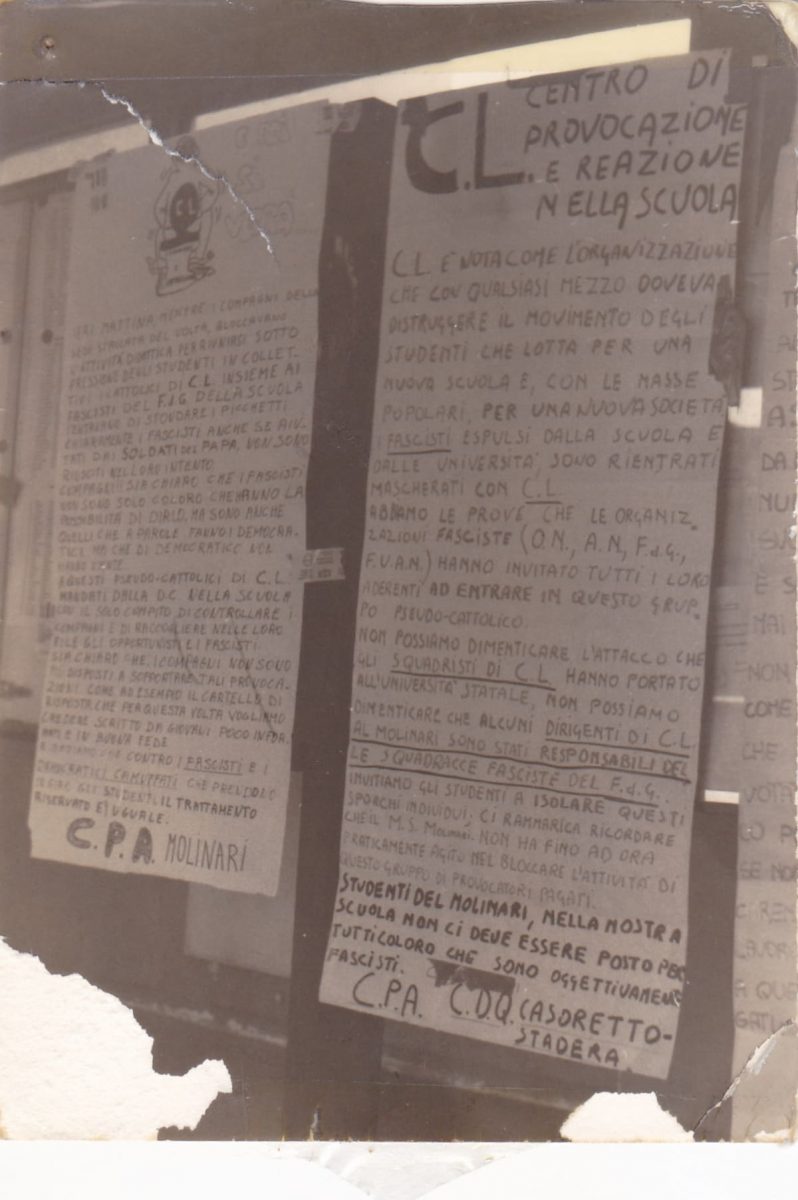 IERI MATTINA MENTRE I COMPAGNI DELLA
SEDE STACCATA DEL VOLTA, BLOCCAVANO
L'ATTIVITÀ DIDATTICA PER RIUNIRSI SOTTO
PRESSIONE DEGLI STUDENTI IN COLLET-
TIVI I CATTOLICI DI C.L. INSIEME AI
FASCISTI DEL F.d.G DELLA SCUOLA
DI SFONDARE I PICCHETTI
CHIARAMENTE I FASCISTI ANCHE SE AIU-
TATI DAI SOLDATI DEL PAPA, NON SONO
RIUSCITI NEL LORO INTENTO.
COMPAGNI!! SIA CHIARO CHE I FASCISTI
NON SONO SOLO COLORO CHE HANNO LA
POSSIBILITÀ DI DIRLO, MA SONO ANCHE
QUELLI CHE A PAROLE FANNO I DEMOCRA-
TICI MA CHE DI DEMOCRATICO NON
HANNO NIENTE.
QUESTI PSEUDO-CATTOLICI DI C.L.
MANDATI DALLA D.C. NELLA SCUOLA
CON IL SOLO COMPITO DI CONTROLLARE I
COMPAGNI E DI RACCOGLIERE NELLE LORO
FILE GLI OPPORTUNISTI E I FASCISTI.
SIA CHIARO CHE, I COMPAGNI NON SONO
PIÙ DISPOSTI A SOPPORTARE TALI PROVOCA-
ZIONI. COME AD ESEMPIO IL CARTELLO DI
RISPOSTA CHE PER QUESTA VOLTA VOGLIAMO
CREDERE SCRITTO DA GIOVANI POCO INFOR.
MATI E IN BUONA FEDE
CHE CONTRO I FASCISTI E I
DEMOCRATICI CAMUFFATI CHE PRENDONO
IN GIRO GLI STUDENTI IL TRATTAMENTO
RISERVATO E' UGUALE.
C.P.A. MOLINARI
C.L. CENTRO DI
PROVOCAZIONE
E REAZIONE
NELLA SCUOLA
C.L. E NOTA COME L'ORGANIZZAZIONE
CHE CON QUALSIASI MEZZO DOVEVA
DISTRUGGERE IL MOVIMENTO DEGLI
STUDENTI CHE LOTTA PER UNA
NUOVA SCUOLA E, CON LE MASSE
POPOLARI, PER UNA NUOVA SOCIETA
I FASCISTI ESPULSI DALLA SCUOLA E
DALLE UNIVERSITA', SONO RIENTRATI
MASCHERATI CON C.L.
ABBIAMO LE PROVE CHE LE ORGANIZ.
ZAZIONI FASCISTE (O.N., A.N, F.d.G.,
F.U.A.N.) HANNO INVITATO TUTTI I LORO
ADERENTI AD ENTRARE IN QUESTO GRUP-
PO PSEUDO-CATTOLICO.
NON POSSIAMO DIMENTICARE L'ATTACCO CHE
GLI SQUADRISTI DI C.L HANNO PORTATO
ALL'UNIVERSITÀ STATALE, NON POSSIAMO
DIMENTICARE CHE ALCUNI DIRIGENTI DI C.L
AL MOLINARI SONO STATI RESPONSABILI DEL
LE SQUADRACCE FASCISTE DEL F.d.G.
INVITIAMO GLI STUDENTI A ISOLARE QUESTI
SPORCHI INDIVIDUI; CI RAMMARICA RICORDARE
CHE IL M.S. MOLINARI. NON HA FINO AD ORA
PRATICAMENTE AGITO NEL BLOCCARE L'ATTIVITA' DI
QUESTO GRUPPO DI PROVOCATORI PAGATI.
STUDENTI DEL MOLINARI, NELLA NOSTRA
SCUOLA NON CI DEVE ESSERE POSTO PER
TUTTI COLORO CHE SONO OGGETTIVAMENTE
FASCISTI.
C.P.A. C.D.Q. CASORETTO-
STADERA
DA
E S
MAI
NON
COME
CHE
VOTA
LO P
SE NO
CI REN
LAVOR
A QUE
GATI